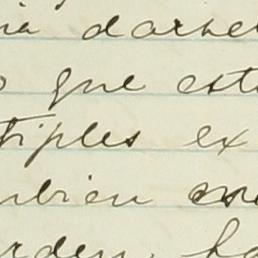 ia darse
o que est
tiples ex
mbien
rden